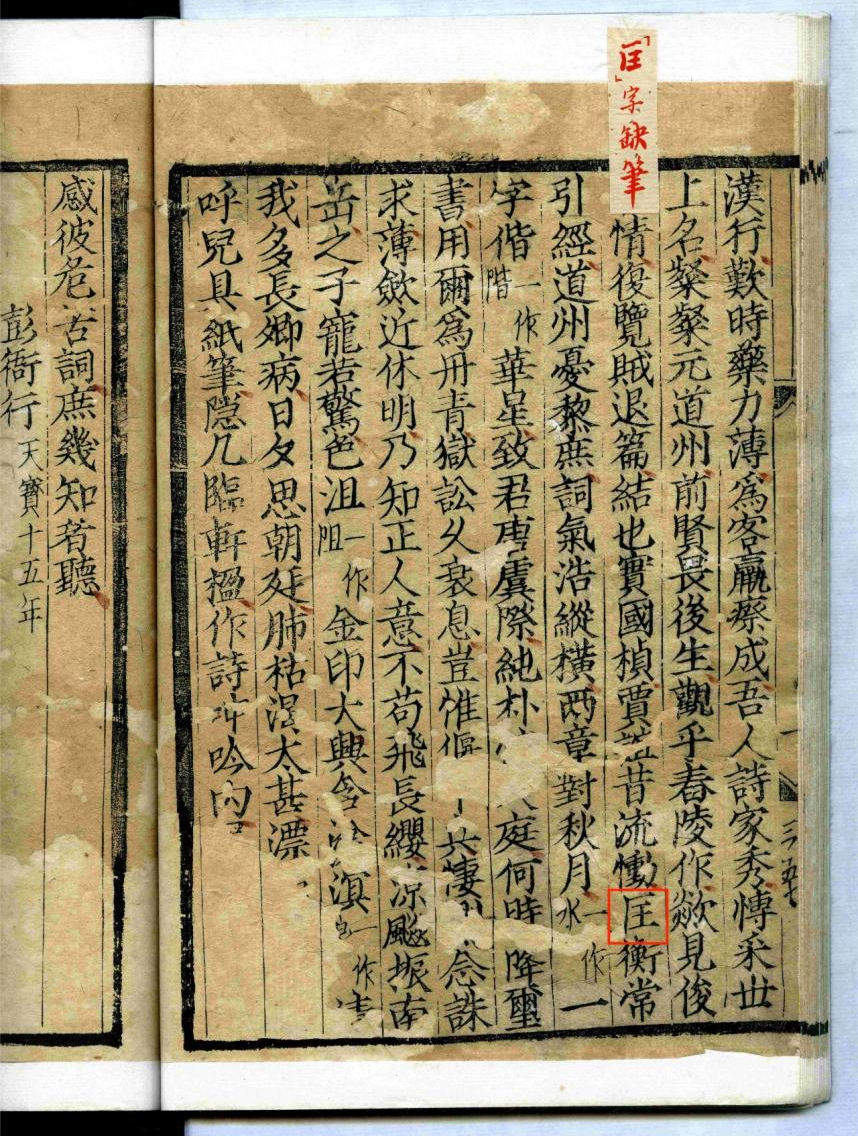 「匡」字缺筆
漢行歎時藥力薄爲客羸瘵成吾人詩家秀愽采世
上名粲粲元道州前賢畏後生觀乎舂陵作欻見俊
情復覽賊退篇結也實國楨賈誼昔流慟匡衡常
引經道州憂黎庶詞氣浩縱橫兩章對秋月一作水一
字偕一作階華星致君唐虞際純朴庭何時降璽
書用爾爲丹青獄訟久衰息豈惟偃兵悽念誅
求薄斂近休明乃知正人意不苟飛長纓凉飈振南
岳之子寵若驚色沮一作阻金印大興含溟一作
我多長卿病日夕思朝廷肺枯渴太甚漂
呼兒具紙筆隱几臨軒楹作詩呻吟內
感彼危苦詞庶幾知者聽
彭衙行天寳十五年